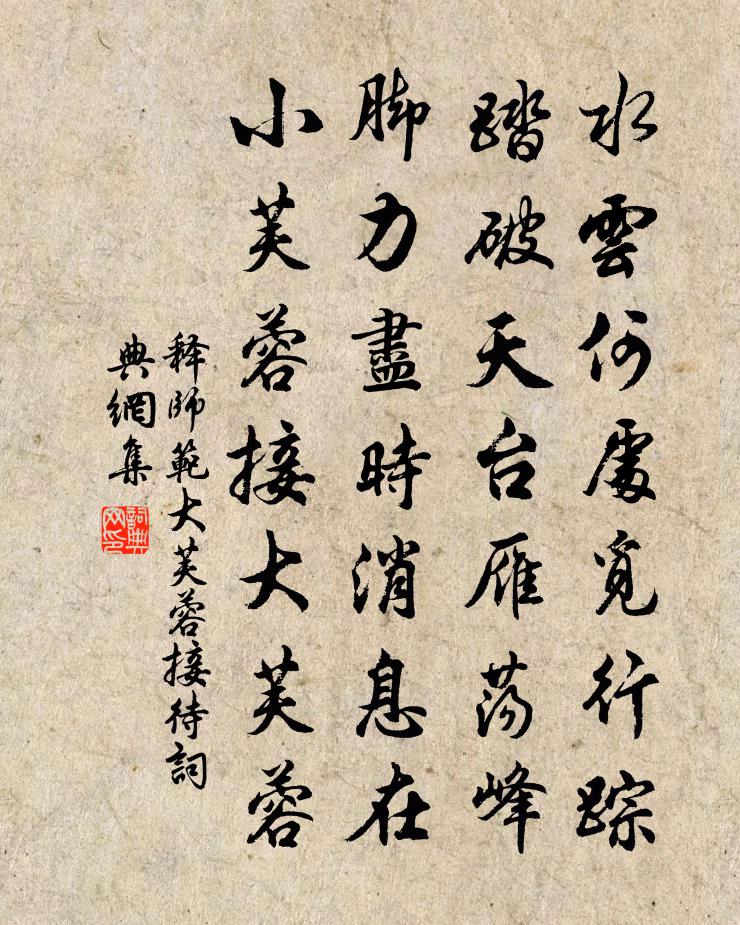 水雲何處覓行踪
踏破天台雁荡峰
脚力盡時消息在
小芙蓉接大芙蓉
释師範大芙蓉接待詞
典網集
詞典
网印